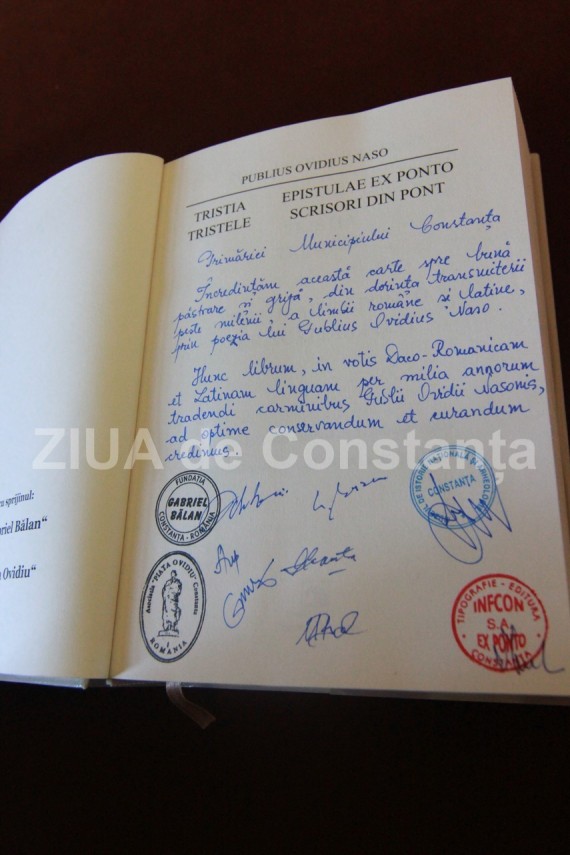 PUBLIUS OVIDIUS NASO
TRISTIA
TRISTELE
EPISTULAE EX PONTO
SCRISORI DIN PONT
Primăriei Municipiului Constanța
Încredințăm această carte spre bună
păstrare și grijă, din dorința transmiterii
peste milenii, a limbii române și latine,
prin poezia lui Publius Ovidius Naso.
Hunc librum, in votis Daco-Romanicam
et Latinam linguam per milia annorum
tradendi carminibus Publii Ovidii Nasonis,
ad optime conservandum et curandum
credimus.
ZIUA de Constanța
cu sprijinul:
riel Bălan“
Ovidiu“
FUNDATIA
GABRIEL
BĂLAN
CONSTANTA - ROMANIA
Asociatia "PIATA OVIDIU" Constanta
ROMANIA
DE ISTORIE NATIONALA SI ARHEOLOGIE
CONSTANTA
TIPOGRAFIE - EDITURA
INFCON
S.A.
EX PONTO
CONSTANTA